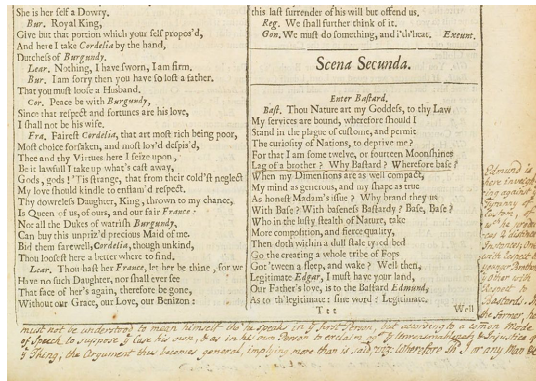 She is her self a Dowry.
Bur. Royal King,
Give but that portion which your self propos'd,
And here I take Cordelia by the hand,
Dutchess of Burgundy.
Lear. Nothing, I have sworn, I am firm.
Bur. I am sorry then you have so lost a father.
That you must loose a Husband.
Cor. Peace be with Burgundy,
Since that respect and fortunes are his love,
I shall not be his wife.
Fra. Fairest Cordelia, that art most rich being poor,
Most choice forsaken, and most lov'd despis'd,
Thee and thy Virtues here I seize upon,
Be it lawfull I take up what's cast away,
Gods, gods! 'Tis strange, that from their cold'st neglect
My love should kindle to enflam'd respect.
Thy dowreless Daughter, King, thrown to my chance,
Is Queen of us, of ours, and our fair France:
Nor all the Dukes of watrish Burgundy,
Can buy this unpriz'd precious Maid of me.
Bid them farewell, Cordelia, though unkind,
Thou loosest here a better where to find.
Lear. Thou hast her France, let her be thine, for we
Have no such Daughter, nor shall ever see
That face of her's again, therefore be gone,
Without our Grace, our Love, our Benizon:
this last surrender of his will but offend us.
Reg. We shall further think of it.
Gon. We must do something, and i'th'heat. Exeunt.
Scena Secunda.
Enter Bastard.
Bast. Thou Nature art my Goddess, to thy Law
My services are bound, wherefore should I
Stand in the plague of custome, and permit
The curiosity of Nations, to deprive me?
For that I am some twelve, or fourteen Moonshines
Lag of a brother? Why Bastard? Wherefore base?
When my Dimensions are as well compact,
My mind as generous, and my shape as true
As honest Madam's issue? Why brand they us
With Base? With baseness Bastardy? Base, Base?
Who in the lusty stealth of Nature, take
More composition, and fierce quality,
Then doth within a dull stale tyred bed
Go the creating a whole tribe of Fops
Got 'tween a sleep, and wake? Well then,
Legitimate Edgar, I must have your land,
Our Father's love, is to the Bastard Edmund,
As to th'legitimate: fine word: Legitimate.
Ttt Well
Edmund is
here inveigh-
ing against y
Tyranny of
Custom, of
Instances, One
with respect to
younger Brothers
other with
respect to
Bastards. In
the former, he
must not be understood to mean himself tho' he speaks in y first Person, but according to a common Mode
of Speech to suppose y case his own, & as in his own Person to exclaim
y Thing, the Argument thus becomes general, implying more than is said, viz. Wherefore sh'd I or any Man &c